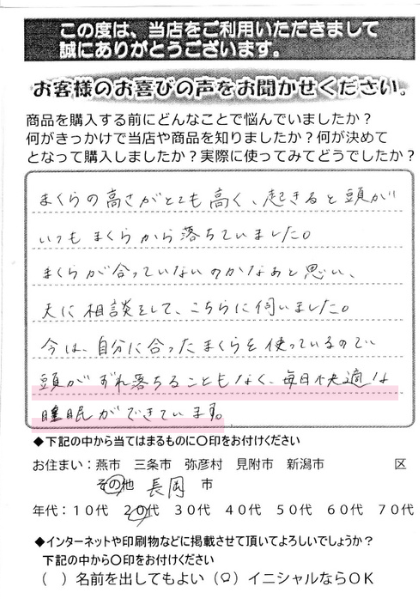 この度は、当店をご利用いただきまして
誠にありがとうございます。
お客様のお喜びの声をお聞かせください。
商品を購入する前にどんなことで悩んでいましたか？
何がきっかけで当店や商品を知りましたか？何が決めて
となって購入しましたか？実際に使ってみてどうでしたか？
まくらの高さがとても高く、起きると頭が
いつもまくらから落ちていました。
まくらが合っていないのかなあと思い、
夫に相談をして、こちらに伺いました。
今は、自分に合ったまくらを使っているので、
頭がずれ落ちることもなく、毎日快適な
睡眠ができています。
◆下記の中から当てはまるものに〇印をお付けください
お住まい：燕市 三条市 弥彦村 見附市 新潟市 区
その他 長岡 市
年代：10代 20代 30代 40代 50代 60代 70代
◆インターネットや印刷物などに掲載させて頂いてよろしいでしょうか？
下記の中から〇印をお付けください
（ ）名前を出してもよい（〇）イニシャルならOK